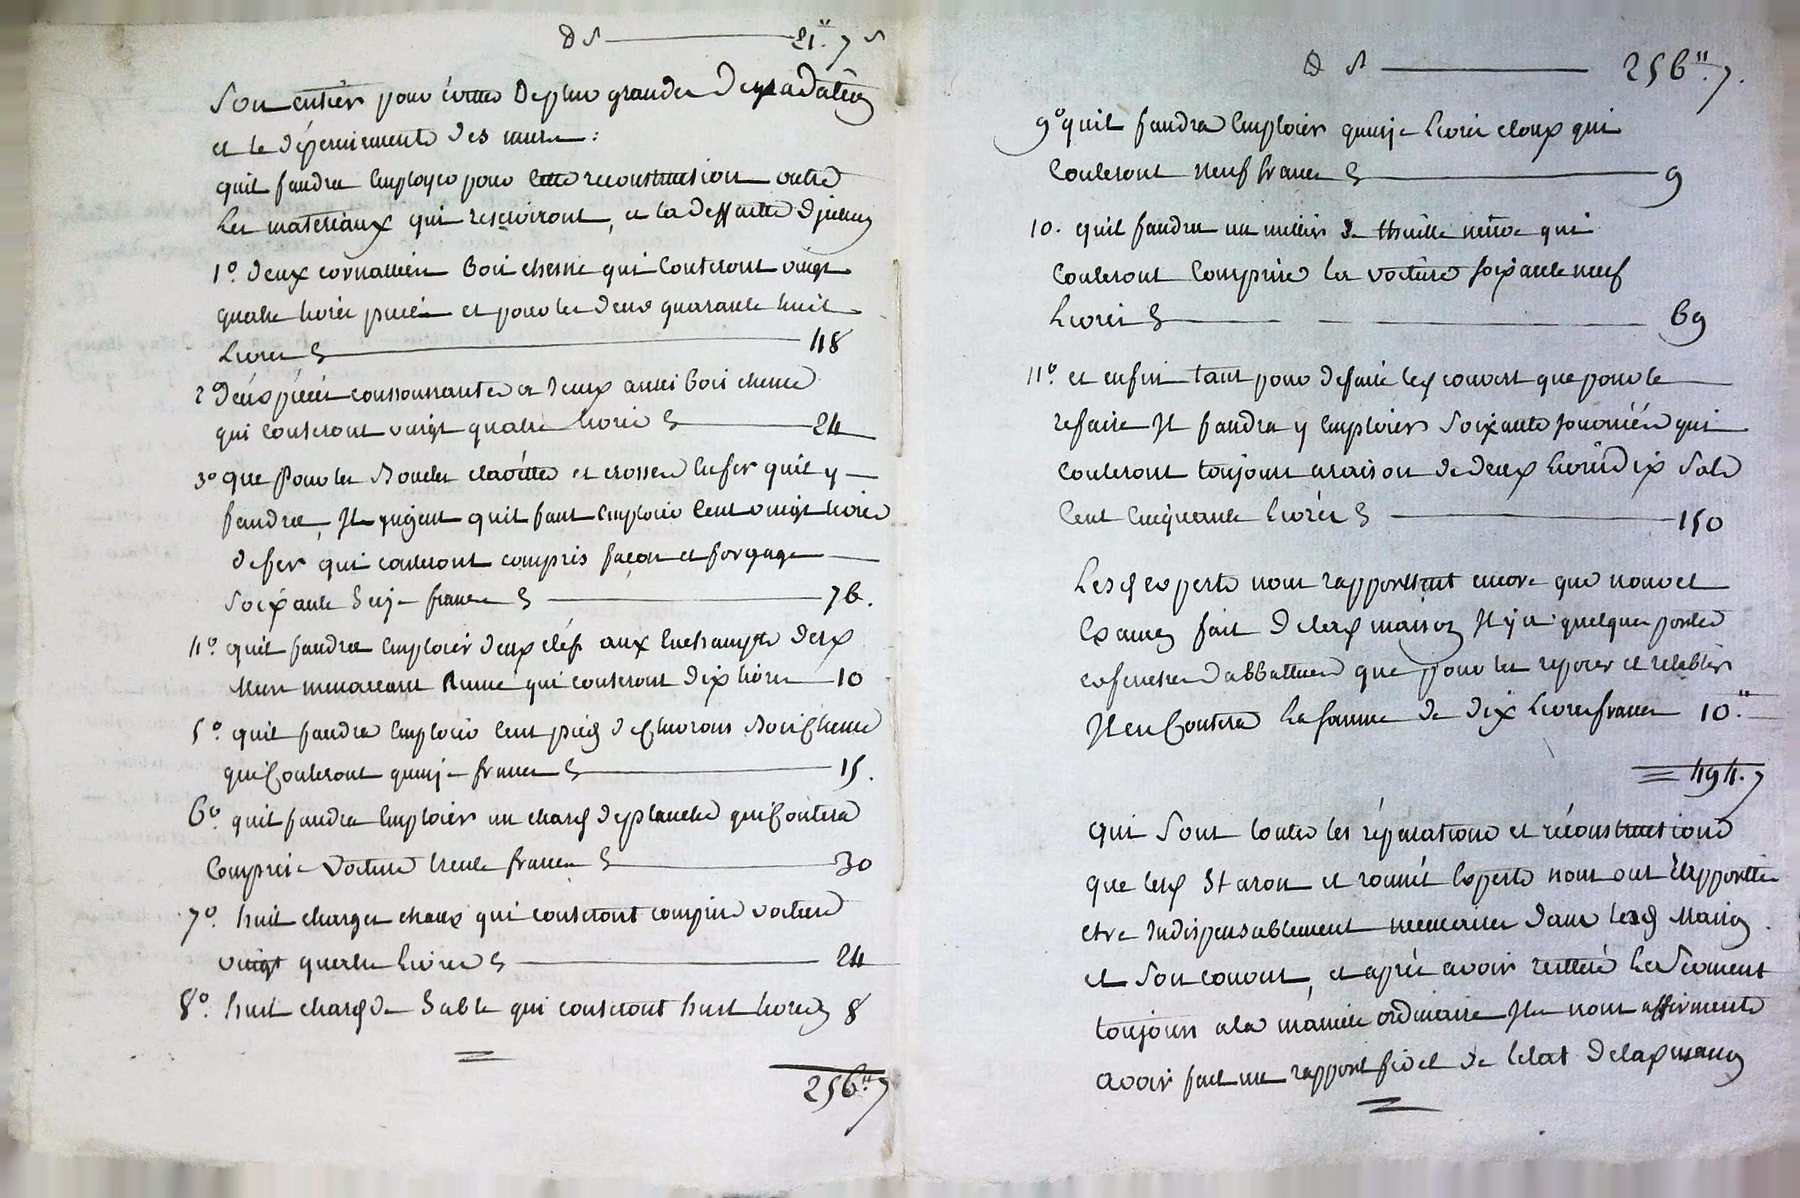 D S ——— 21" 7 s
son entier pour éviter de plus grandes degradation
et le déperissement des murs :
quil faudra employer pour cette reconstruction outre
les materiaux qui resserviront, et la deffaitte
1º deux cornallieres bois chesne qui couteront vingt
quatre livres piece et pour les deux quarante huit
Livres ——— 48
2º deux pieces et deux aussi bois chesne
qui couteront vingt quatre livres ——— 24
3º que pour les boucles clavettes et crosses en fer quil y
faudra, Ils jugent quil faut emploier cent vingt livres
de fer qui couteront compris façon et forgage
soixante seize francs ——— 76.
4º. quil faudra emploier deux clefs aux desd
Murs menaceant Ruine qui couteront dix livres — 10
5º. quil faudra emploier cent pieds de chevrons bois chesne
qui couteront quinze francs ——— 15.
6º. quil faudra emploier un charg de planches qui coutera
compris voiture trente francs ——— 30
7º. huit charges chaux qui couteront compris voiture
vingt quatre livres ——— 24
8º. huit charg de sable qui couteront huit livres 8
256" 7
D S ——— 256" 7.
9º quil faudra emploier quinze livres cloux qui
couteront neuf francs ——— 9
10. quil faudra un millier de thuille neuve qui
couteront comprise la voiture soixante neuf
Livres ——— 69
11º. et enfin tant pour defaire lesd couvert que pour le
refaire Il faudra y emploier soixante journées qui
couteront toujours a raison de deux livres dix sols
cent cinquante livres ——— 150
Lesd experts nous rapportent encore que nouvel
Examen fait de lad maison Il y a quelques portes
et fenestres d'abbattues que pour les reposer et retablir
Il en coutera la somme de dix livres francs 10."
494. 7
qui sont toutes les réparations et réconstructions
que lesd St aron et experts nous ont Rapportté
etre Indispensablement necessaires dans lesd Maison
et son couvert, et aprés avoir reitteré Le serment
toujours a la maniere ordinaire Ils nous affirmente
avoir fait un rapport fidel de letat de lad maison